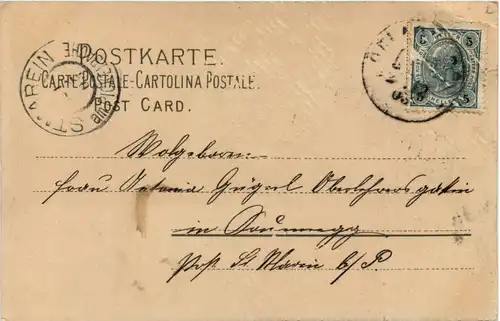 POSTKARTE.
CARTE POSTALE-CARTOLINA POSTALE.
POST CARD.
ST MAREIN
5 5
Wolgeboren:
Frau Antonia Gügerl Oberlehrersgattin
in
Post St Marein b/P